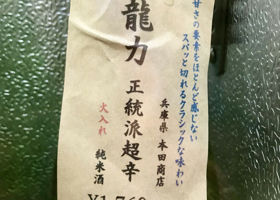 甘さの要素をほとんど感じない
スパッと切れるクラシックな味わい
兵庫県 本田商店
龍力 正統派超辛
火入れ 純米酒
¥1,760